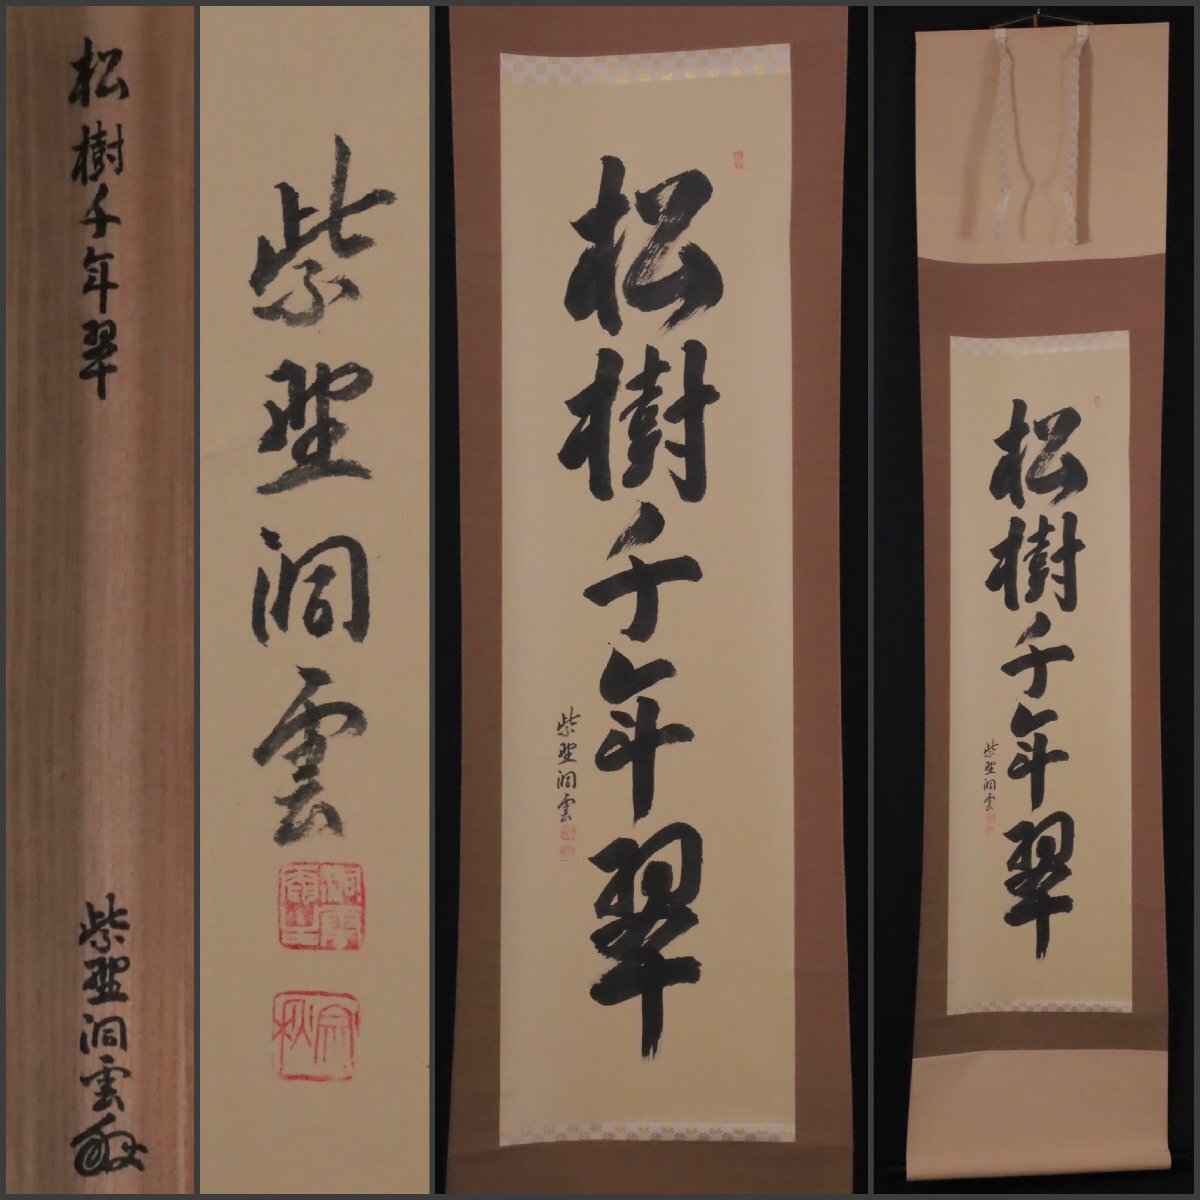 松樹千年翠
紫野洞雲
紫野洞雲
松樹千年翠
紫野洞雲
松樹千年翠
紫野洞雲